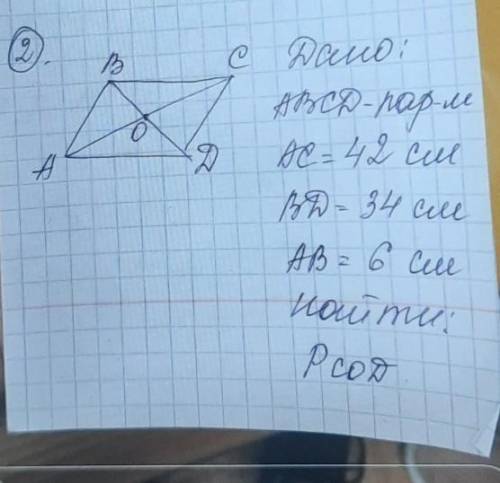 2.
B C
O
A D
Дано:
ABCD-пар-м
AC = 42 см
BD = 34 см
AB = 6 см
Найти:
PCOD